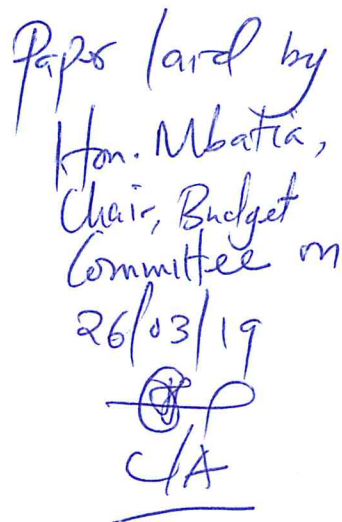 Paper laid by
Hon. Mbatia,
Chair, Budget
Committee on
26/03/19
C/A